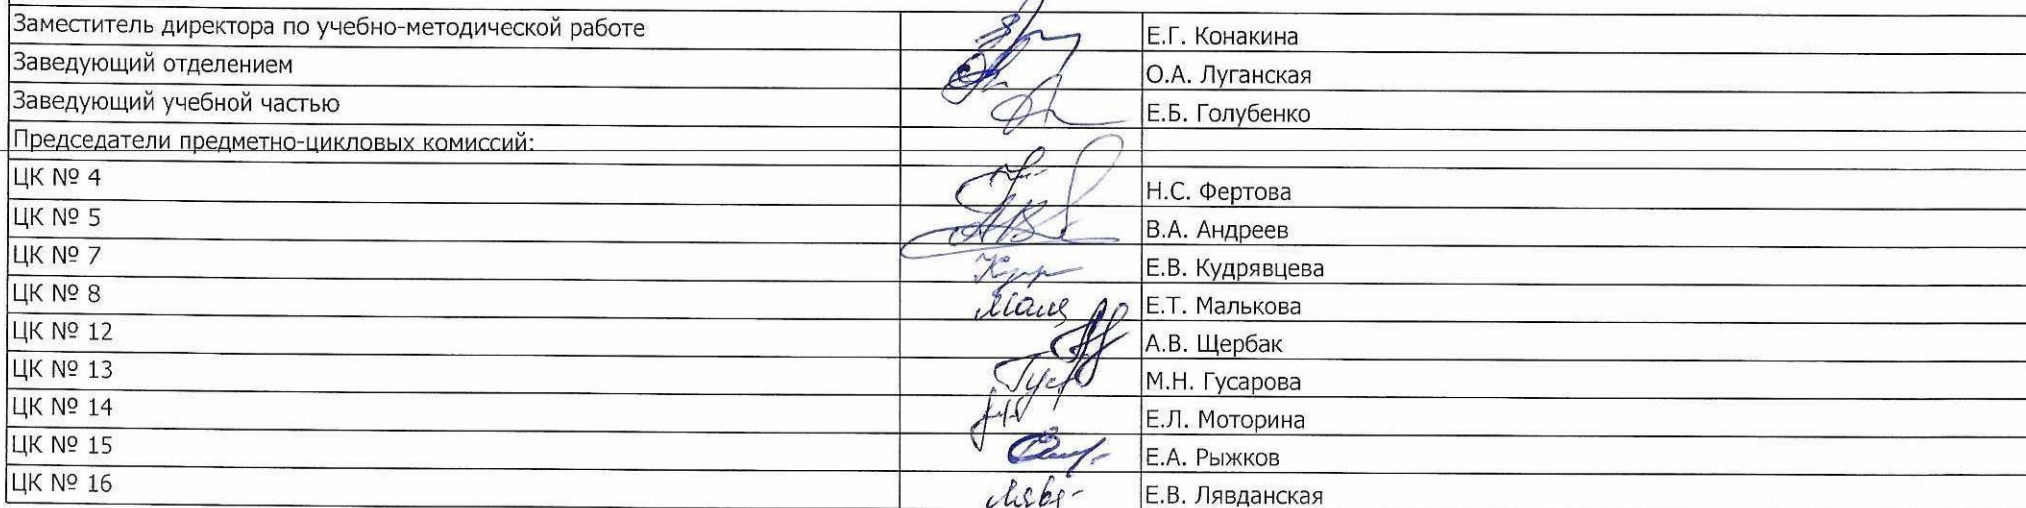 Заместитель директора по учебно-методической работе Е.Г. Конакина
Заведующий отделением О.А. Луганская
Заведующий учебной частью Е.Б. Голубенко
Председатели предметно-цикловых комиссий:
ЦК № 4 Н.С. Фертова
ЦК № 5 В.А. Андреев
ЦК № 7 Е.В. Кудрявцева
ЦК № 8 Е.Т. Малькова
ЦК № 12 А.В. Щербак
ЦК № 13 М.Н. Гусарова
ЦК № 14 Е.Л. Моторина
ЦК № 15 Е.А. Рыжков
ЦК № 16 Е.В. Лявданская